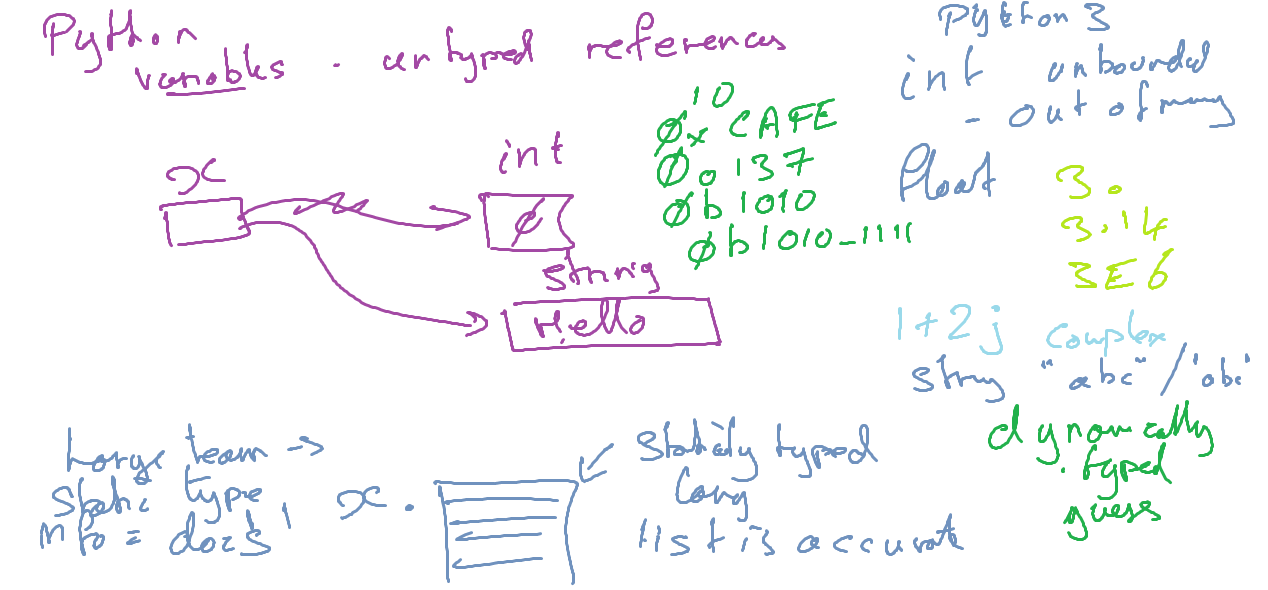 Python
variables . untyped references
x
int
0
string
Hello
10
0xCAFE
0o137
0b1010
0b1010_1111
Python 3
int unbounded
- out of memory
float 3.
3.14
3E6
1+2j complex
string "abc" / 'abc'
dynamically
typed
guess
Large team ->
static type
info = docs!
x .
Statically typed
lang
list is accurate